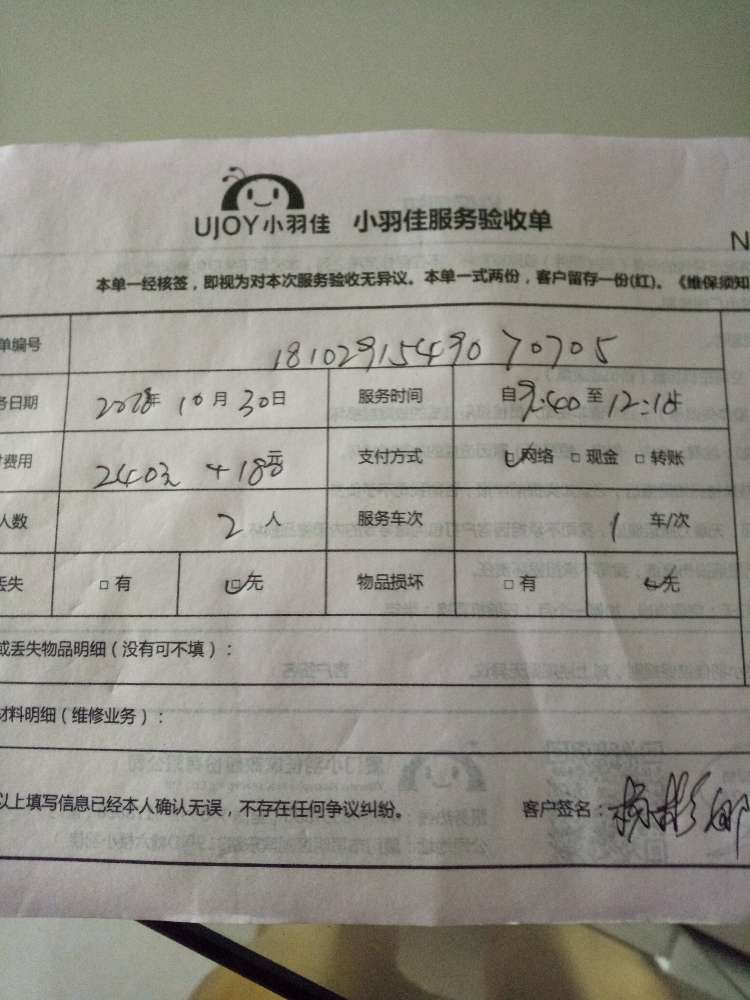 UJOY小羽佳 小羽佳服务验收单
N
本单一经核签，即视为对本次服务验收无异议。本单一式两份，客户留存一份(红)。《维保须知
单编号 1810291549070705
务日期 2018年 10月 30日 服务时间 自9:40 至 12:10
费用 240元 +18元 支付方式 网络 □ 现金 □ 转账
人数 2人 服务车次 1 车/次
丢失 □ 有 □无 物品损坏 □ 有 无
或丢失物品明细（没有可不填）：
材料明细（维修业务）：
以上填写信息已经本人确认无误，不存在任何争议纠纷。 客户签名：杨彬